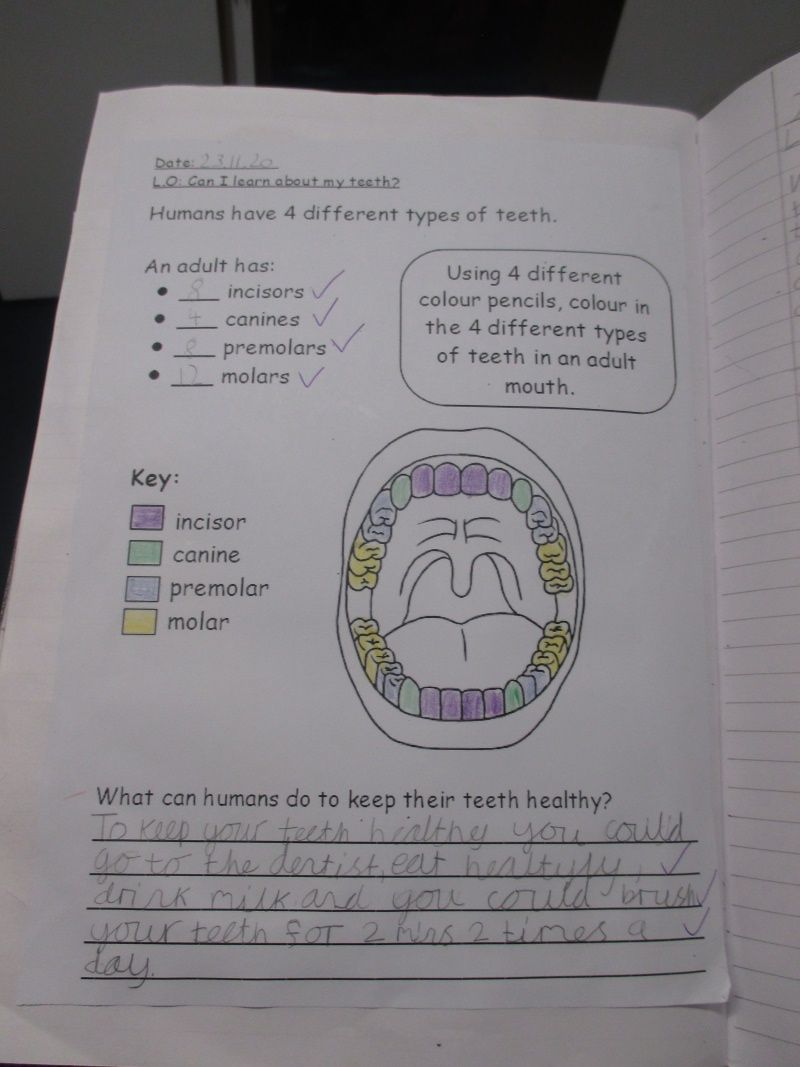 Date: 23.11.20
L.O: Can I learn about my teeth?
Humans have 4 different types of teeth.
An adult has:
• 8 incisors
• 4 canines
• 8 premolars
• 12 molars
Using 4 different
colour pencils, colour in
the 4 different types
of teeth in an adult
mouth.
Key:
incisor
canine
premolar
molar
What can humans do to keep their teeth healthy?
To keep your teeth healthy you could
go to the dentist, eat healtyfy,
drink milk and you could brush
your teeth for 2 mins 2 times a
day.